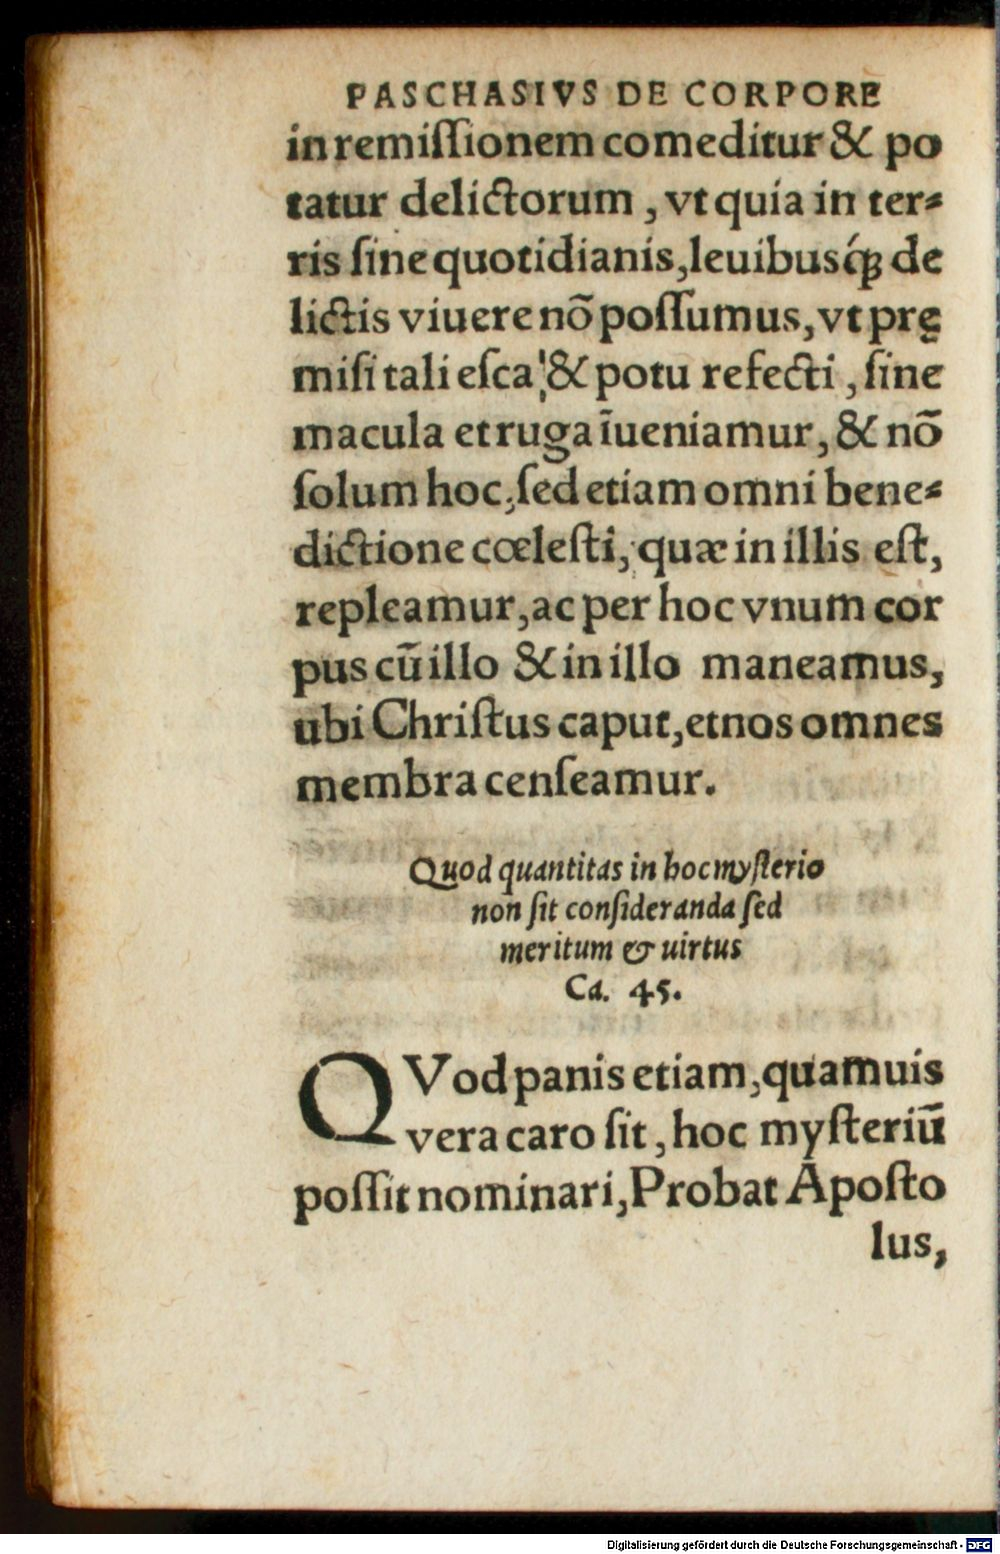 PASCHASIVS DE CORPORE
in remiſſionem comeditur & po
tatur delictorum, vt quia in ter⸗
ris ſine quotidianis, leuibusq́ꝫ de
lictis viuere nõ poſſumus, vt prę
miſi tali eſca & potu refecti, ſine
macula et ruga ĩueniamur, & nõ
ſolum hoc, ſed etiam omni bene⸗
dictione cœleſti, quæ in illis eſt,
repleamur, ac per hoc vnum cor
pus cũ illo & in illo maneamus,
ubi Chriſtus caput, et nos omnes
membra cenſeamur.
Quod quantitas in hoc myſterio
non ſit conſideranda ſed
meritum & uirtus
Ca. 45.
QVod panis etiam, quamuis
vera caro ſit, hoc myſteriũ
poſſit nominari, Probat Apoſto
lus,
Digitalisierung gefördert durch die Deutsche Forschungsgemeinschaft - DFG